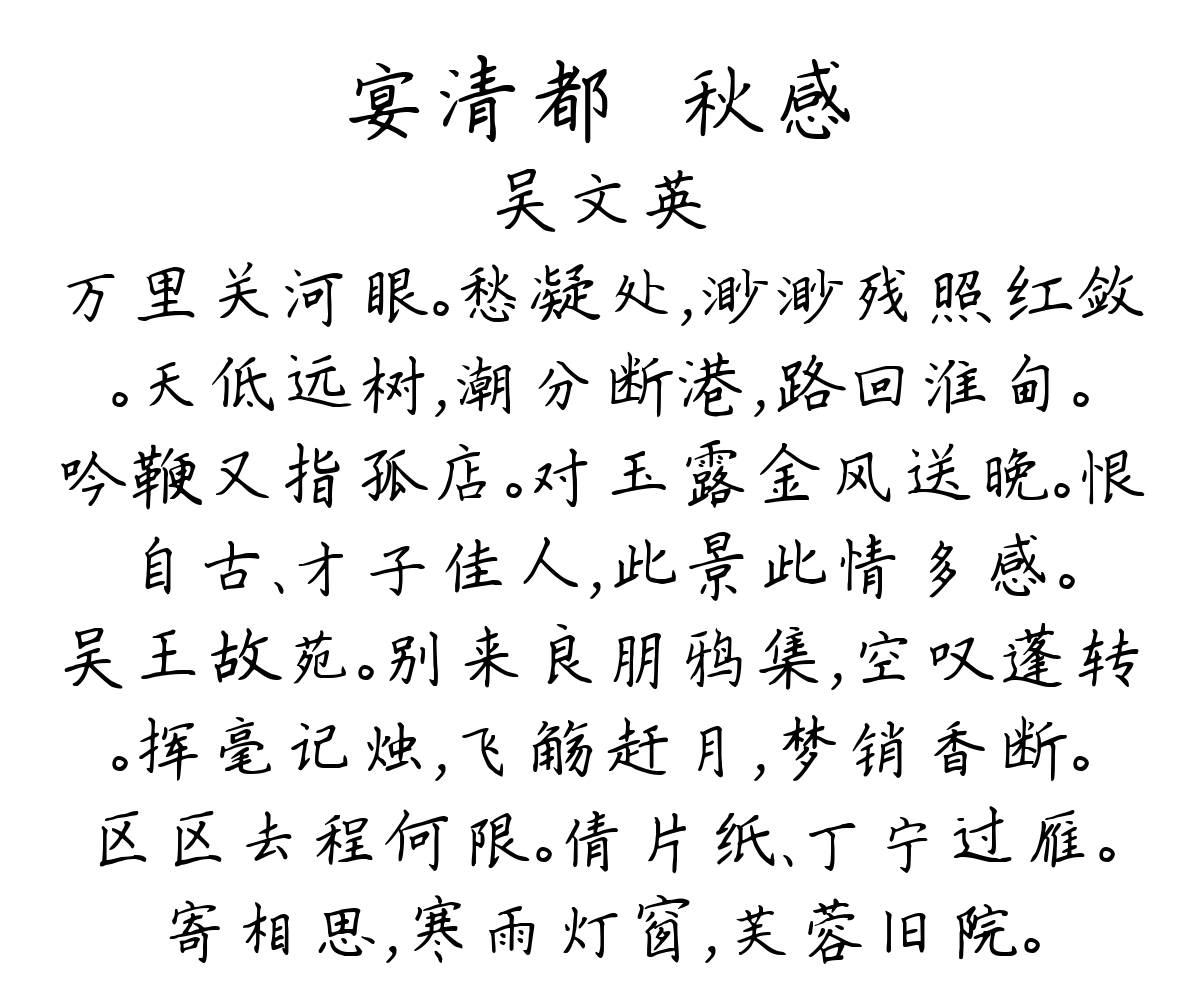 宴清都 秋感
吴文英
万里关河眼。愁凝处,渺渺残照红敛
。天低远树,潮分断港,路回淮甸。
吟鞭又指孤店。对玉露金风送晚。恨
自古、才子佳人,此景此情多感。
吴王故苑。别来良朋鸦集,空叹蓬转
。挥毫记烛,飞觞赶月,梦销香断。
区区去程何限。倩片纸、丁宁过雁。
寄相思,寒雨灯窗,芙蓉旧院。